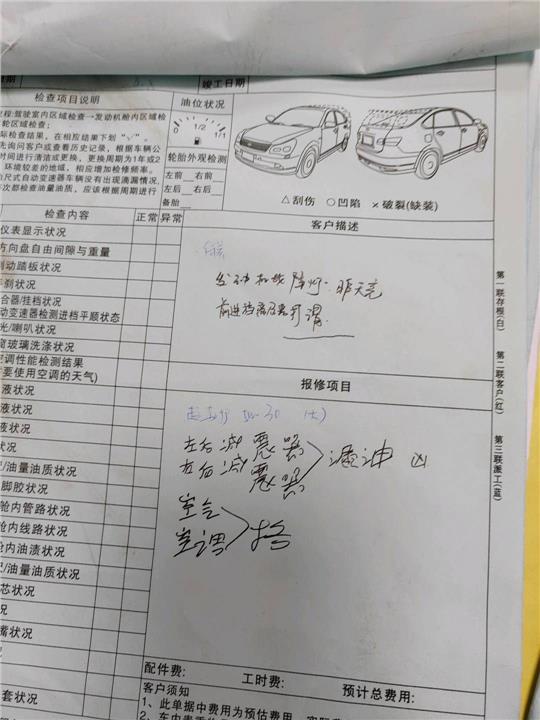 竣工日期
检查项目说明
油位状况
1/2
1/1
程:驾驶室内区域检查→发动机舱内区域检
轮区域检查;
际检查结果,在相应结果下划"√"。
先询问客户或查看历史记录,根据车辆公
时间进行清洁或更换,更换周期为1年或2
环境较差的地域,相应增加检修频率。
尺式自动变速器车辆没有出现滴漏情况,
次都检查油量油质,应该根据周期进行
轮胎外观检测
左前__右前
左后__右后
备胎__
△刮伤 ○凹陷 ×破裂(缺装)
检查内容 正常 异常
客户描述
仪表显示状况
方向盘自由间隙与重量
制动踏板状况
手刹状况
合器/挂档状况
动变速器检测进档平顺状态
光/喇叭状况
窗玻璃洗涤状况
空调性能检测结果
要使用空调的天气)
液状况
液状况
液状况
状况
/油量油质状况
脚胶状况
舱内管路状况
舱内线路状况
舱内油渍状况
/油量油质状况
芯状况
况
嘴状况
况
套状况
发动机故障灯. 昨天亮
报修项目
左右减震器
左右减震器
漏油
空气
空调
格
第一联存根(白)
第二联客户(红)
第三联派工(蓝)
配件费: 工时费: 预计总费用:
客户须知
1、此单据中费用为预估费用,